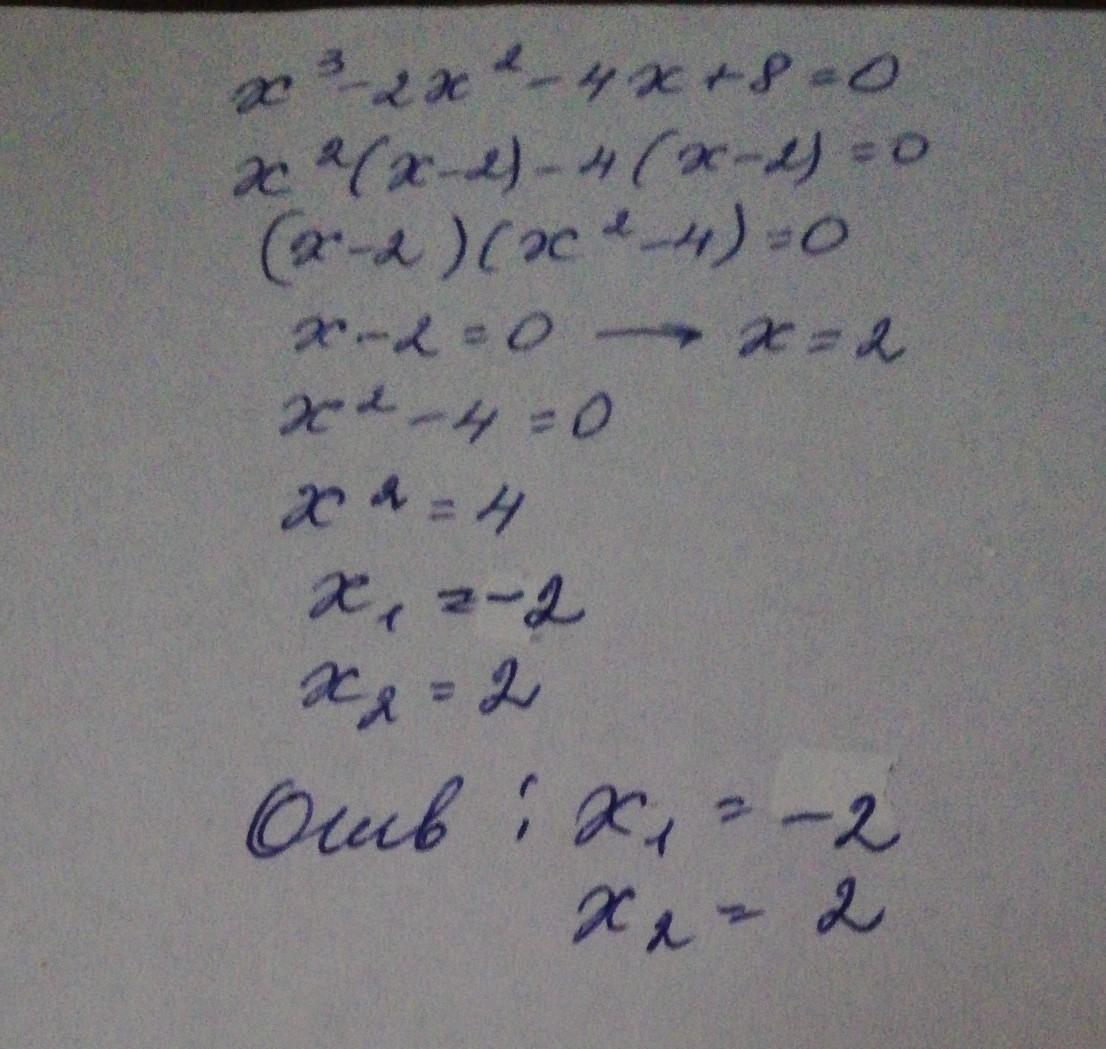 x³-2x²-4x+8=0
x²(x-2)-4(x-2)=0
(x-2)(x²-4)=0
x-2=0 → x=2
x²-4=0
x²=4
x₁=-2
x₂=2
Отв: x₁=-2
x₂=2